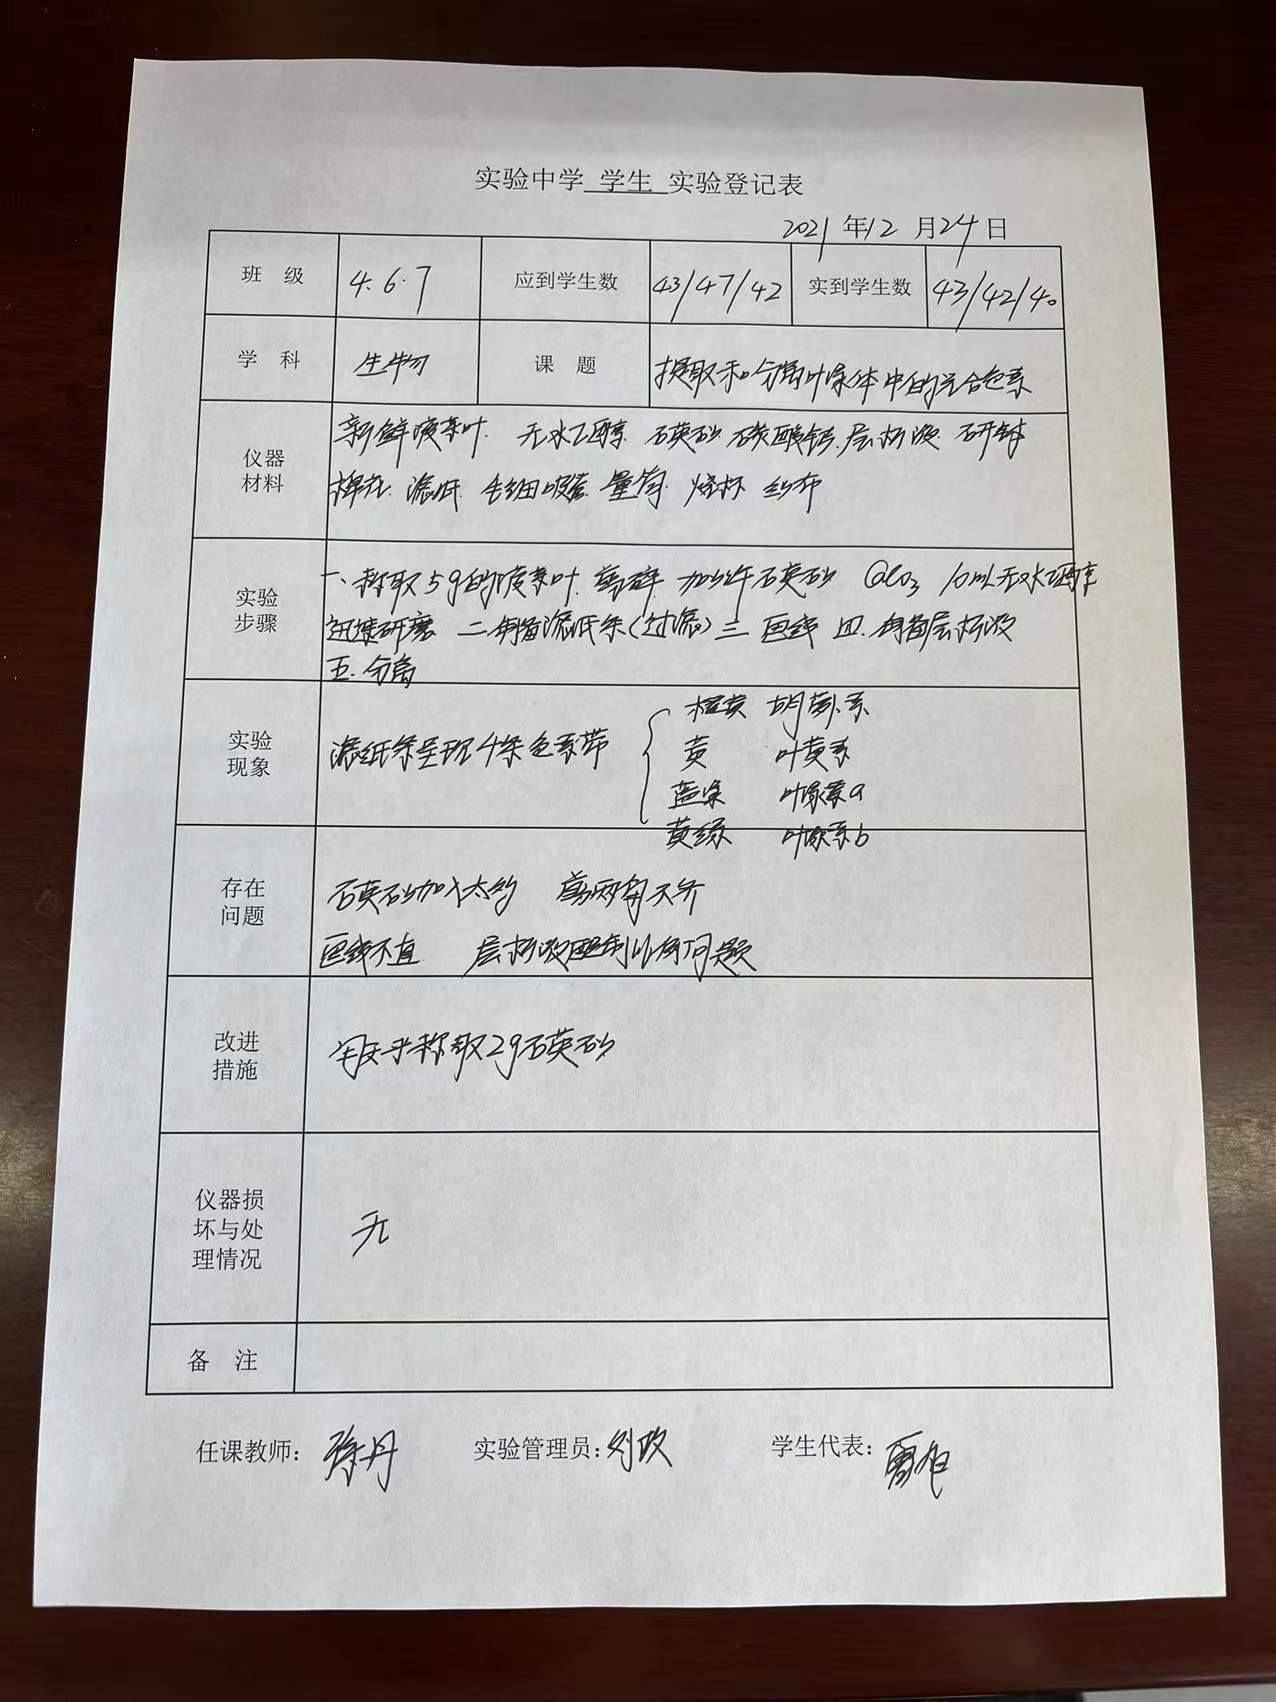 实验中学 学生 实验登记表
2021 年12 月24日
班 级 4.6.7 应到学生数 43/47/42 实到学生数 43/42/40
学 科 生物 课 题 提取和分离叶绿体中的光合色素
仪器材料 新鲜菠菜叶 无水乙醇 石英砂 碳酸钙 层析液 研钵
棉花 滤纸 毛细吸管 量筒 烧杯 纱布
实验步骤 一、称取5g的菠菜叶 剪碎 加少许石英砂 CaCO3 10mL无水乙醇
迅速研磨 二 制备滤纸条(过滤) 三 画线 四 制备层析液
五.分离
实验现象 滤纸条呈现4条色素带
橙黄 胡萝卜素
黄 叶黄素
蓝绿 叶绿素a
黄绿 叶绿素b
存在问题 石英砂加入太少 剪两角不齐
画线不直 层析液配制比例问题
改进措施 用天平称取2g石英砂
仪器损坏与处理情况 无
备 注
任课教师: 徐丹 实验管理员: 刘政 学生代表: